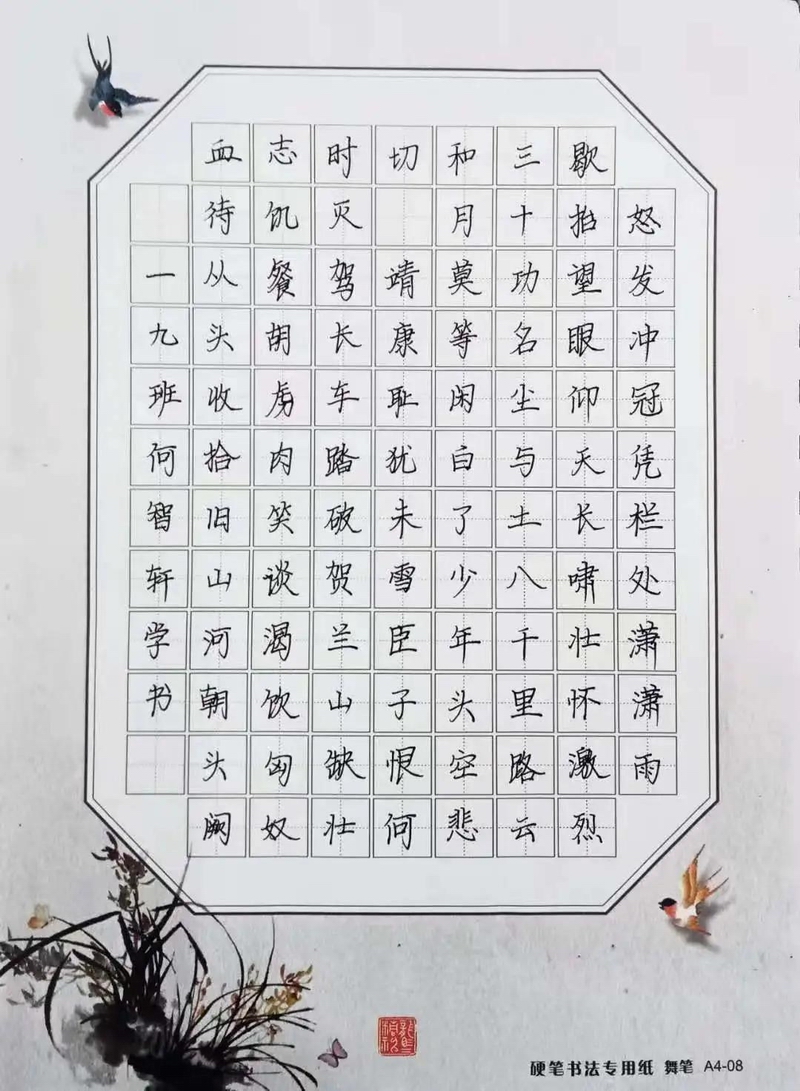 怒发冲冠凭栏处潇潇雨
歇抬望眼仰天长啸壮怀激烈
三十功名尘与土八千里路云
和月莫等闲白了少年头空悲
切 靖康耻犹未雪臣子恨何
时灭驾长车踏破贺兰山缺壮
志饥餐胡虏肉笑谈渴饮匈奴
血待从头收拾旧山河朝头阙
一九班何智轩学书
硬笔书法专用纸 舞笔 A4-08